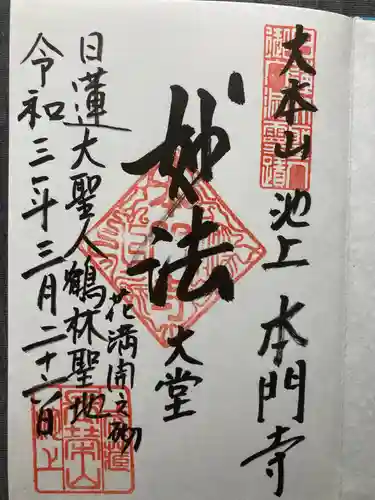 大本山
池上 本門寺
妙法
大堂
花満開之砌
日蓮大聖人鶴林聖地
令和三年三月二十六日